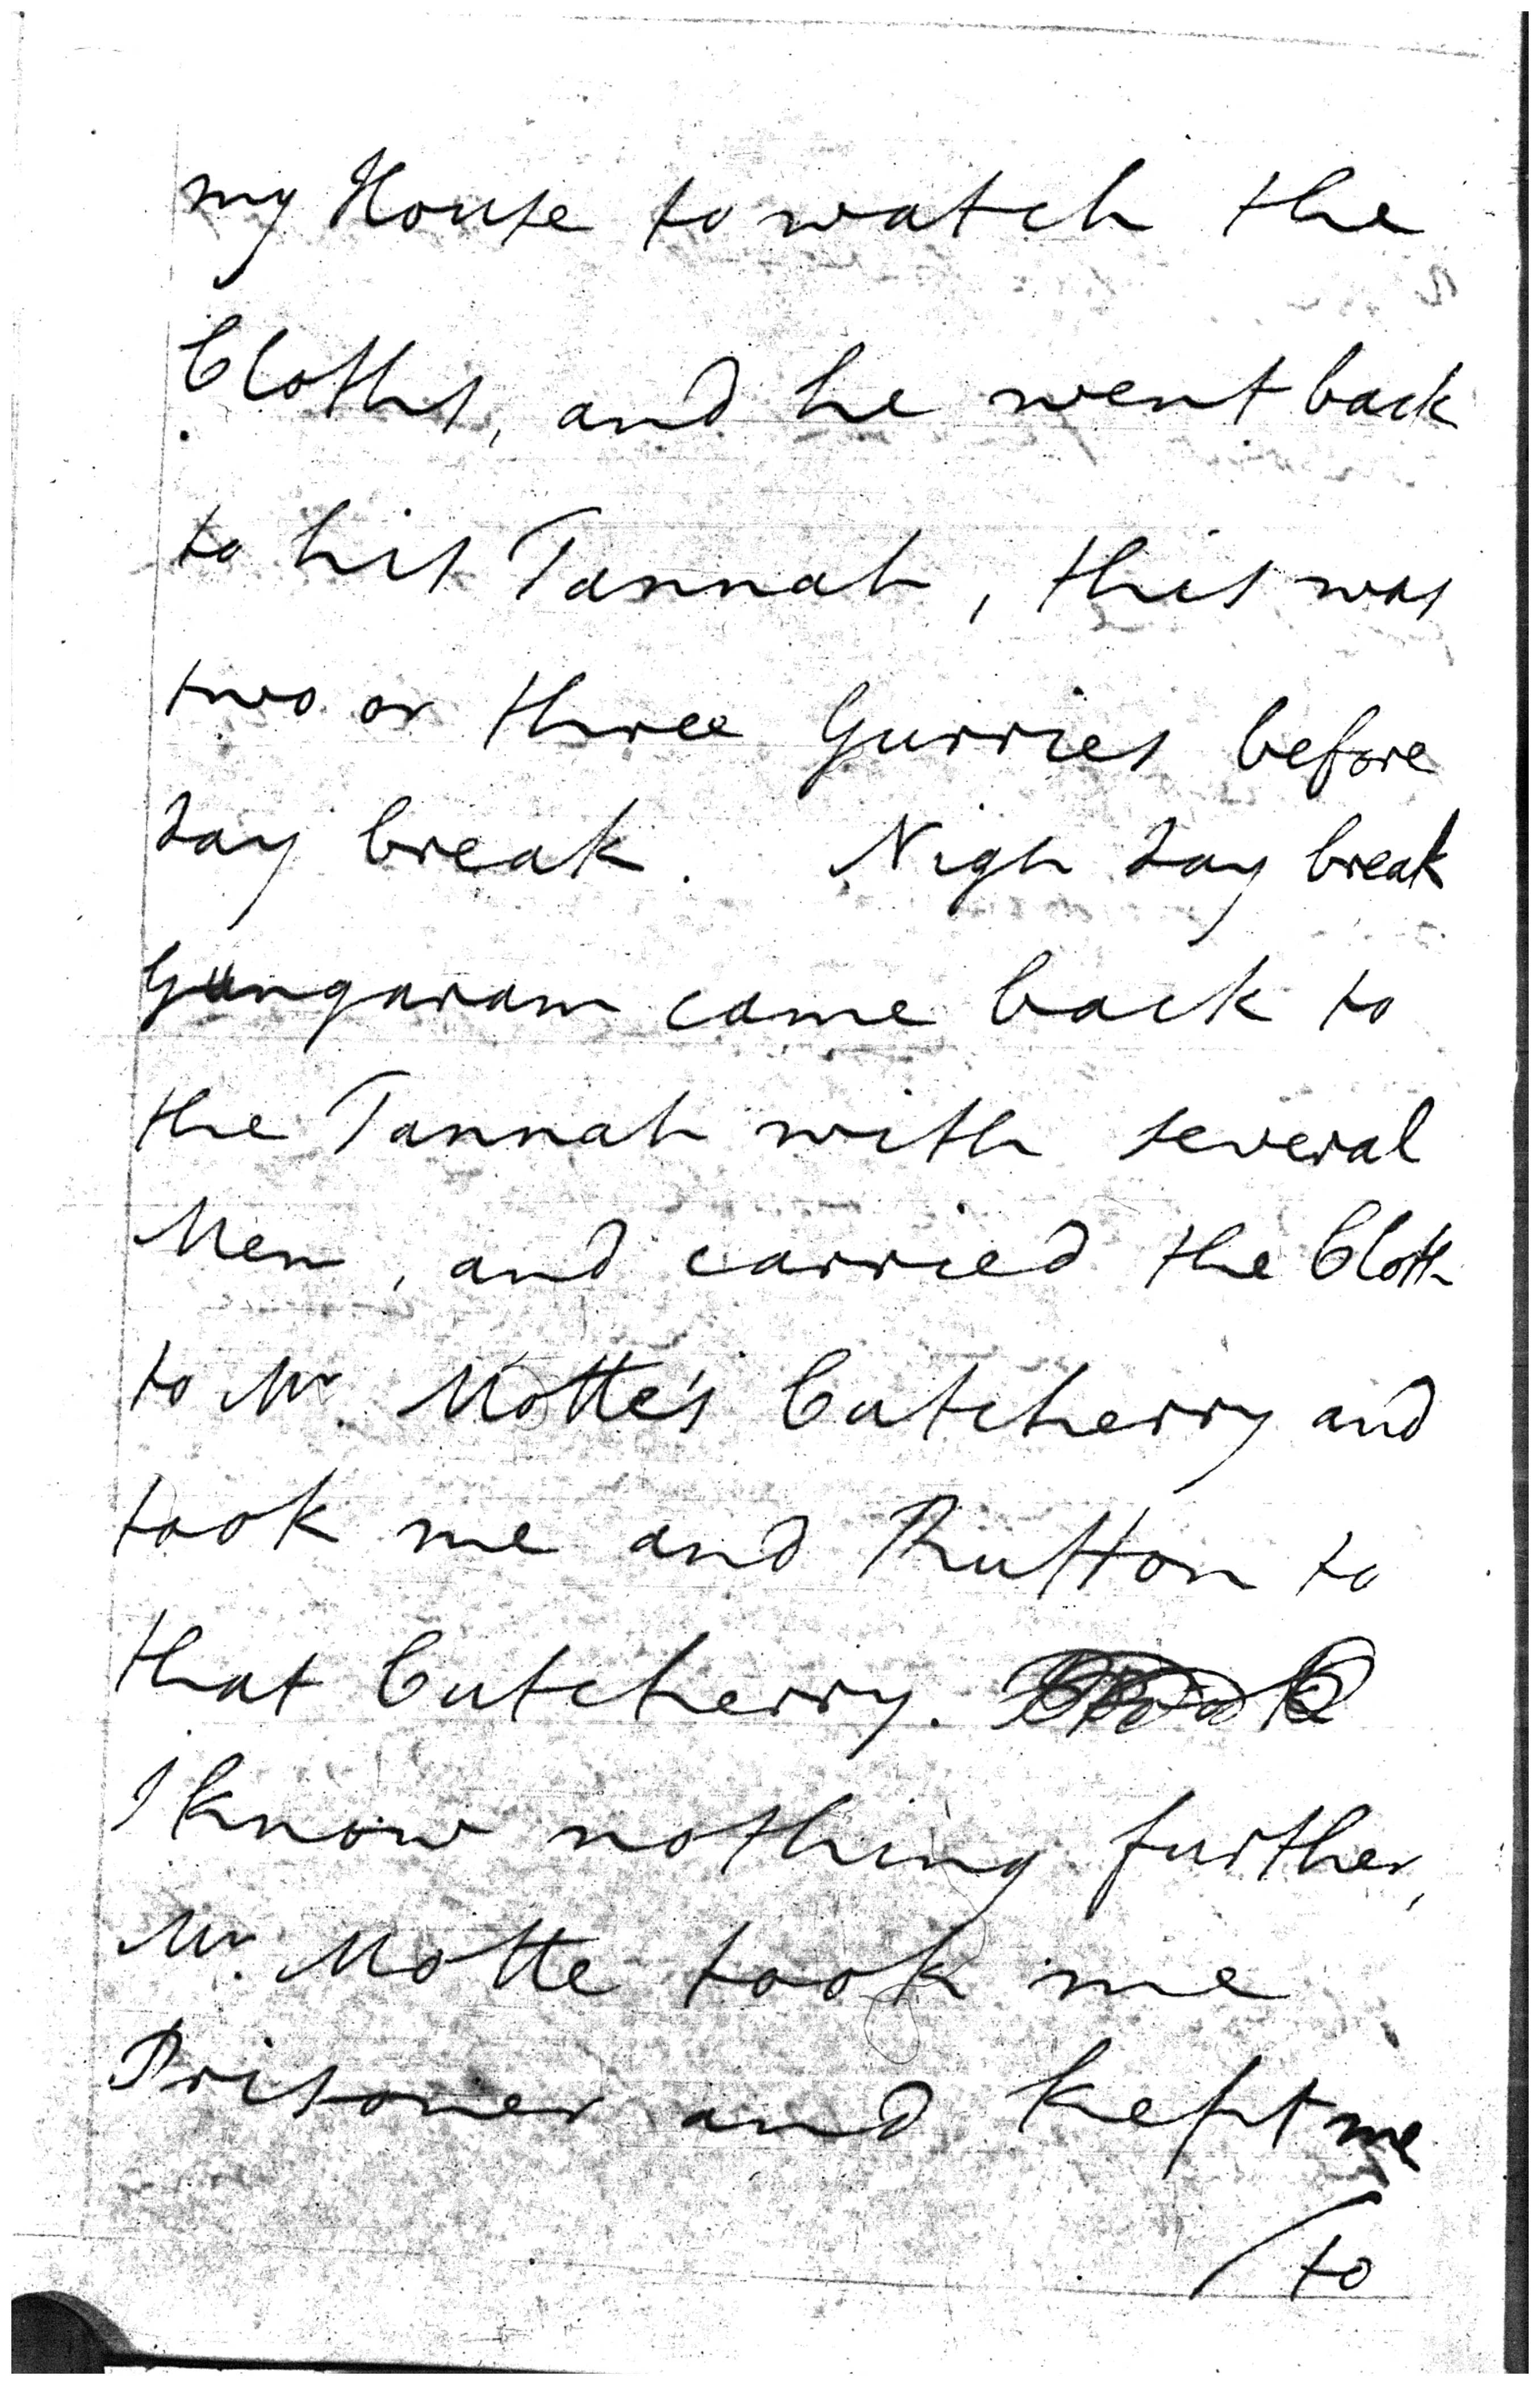 my House to watch the
Cloths, and he went back
to his Tannah, this was
two or three Gurries before
day break. Nigh day break
Gungaram came back to
the Tannah with several
Men, and carried the Cloth
to Mr. Motte's Cutcherry and
took me and Rutton to
that Cutcherry.
I know nothing further,
Mr. Motte took me
Prisoner and kept me
to